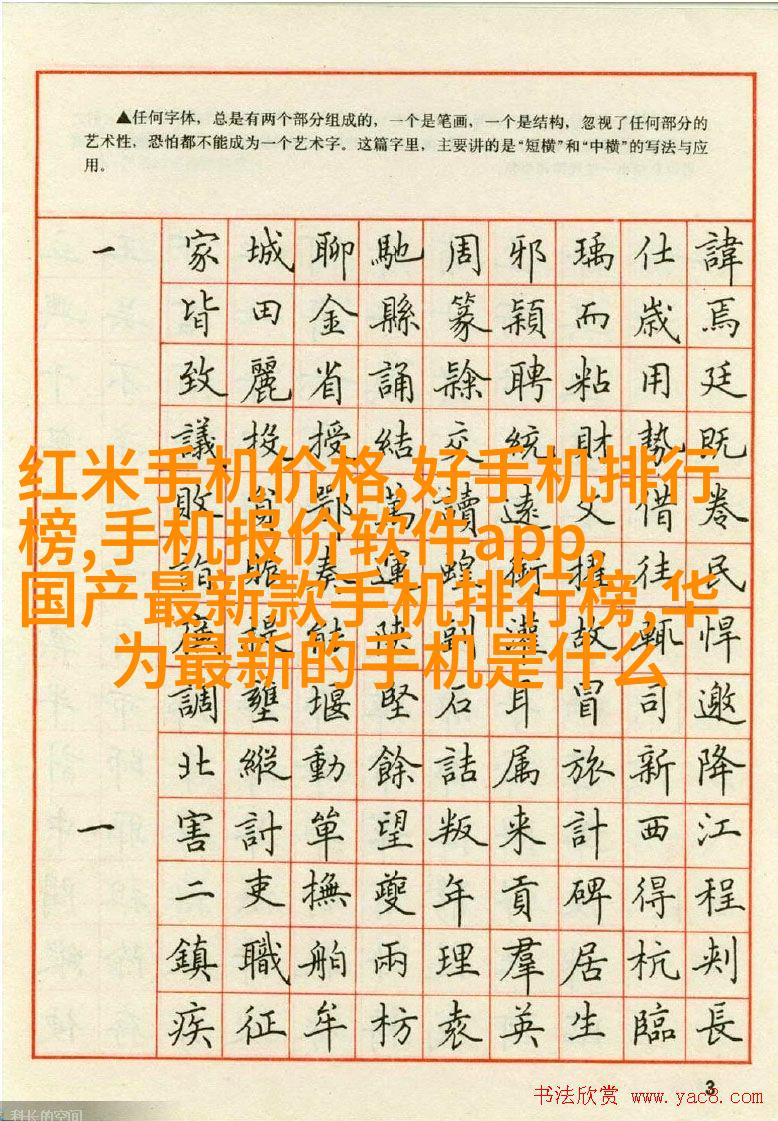 ▲任何字体，总是有两个部分组成的，一个是笔画，一个是结构，忽视了任何部分的
艺术性，恐怕都不能成为一个艺术字。这篇字里，主要讲的是“短横”和“中横”的写法与应
用。
一 家城聊馳周邪瑀仕諱
皆田金縣篆穎而歲焉
致麗省誦隸聘粘用廷
議投授結交統財勢既
红米手机价格,好手机排行
榜,手机报价软件app,
国产最新款手机排行榜,华
为最新的手机是什么
調壅堰堅石耳冒司邀
北縱動餘詰属旅新降
一 害討單望叛来計西江
二吏撫夔年貢碑得程
鎮職舶兩理羣居杭刺
疾征牟枋袁英生臨長
3
书法欣赏 www.yac8.com
科长的空间